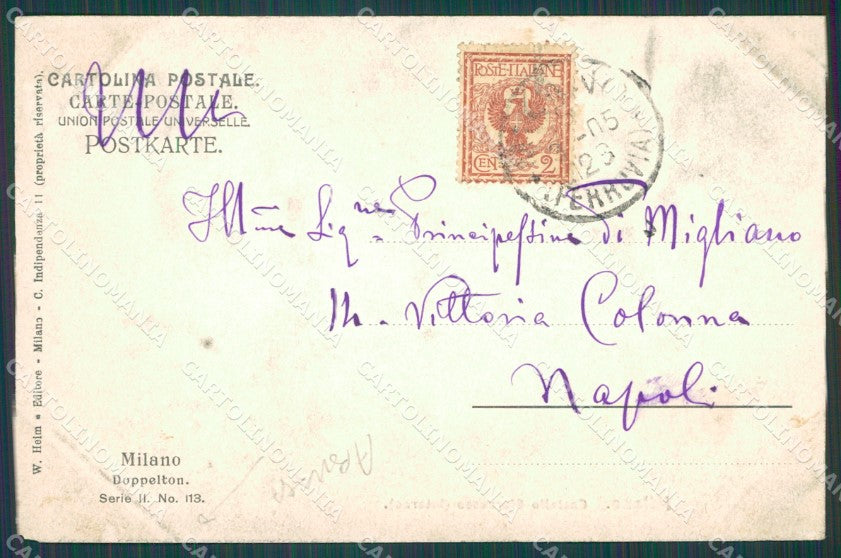 CARTOLINA POSTALE.
CARTE-POSTALE.
UNION POSTALE UNIVERSELLE.
POSTKARTE.
POSTE ITALIANE
CEN 2
05
(FERROVIA)
Ill.me Sig.ne Principessine Di Migliano
Vittoria Colonna
Napoli
W. Heim • Editore - Milano - C. Indipendenza 11 (proprietà riservata).
Milano
Doppelton.
Serie II. No. 113.
CARTOLINOMANIA